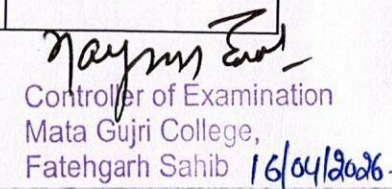 Controller of Examination
Mata Gujri College,
Fatehgarh Sahib 16/04/2026